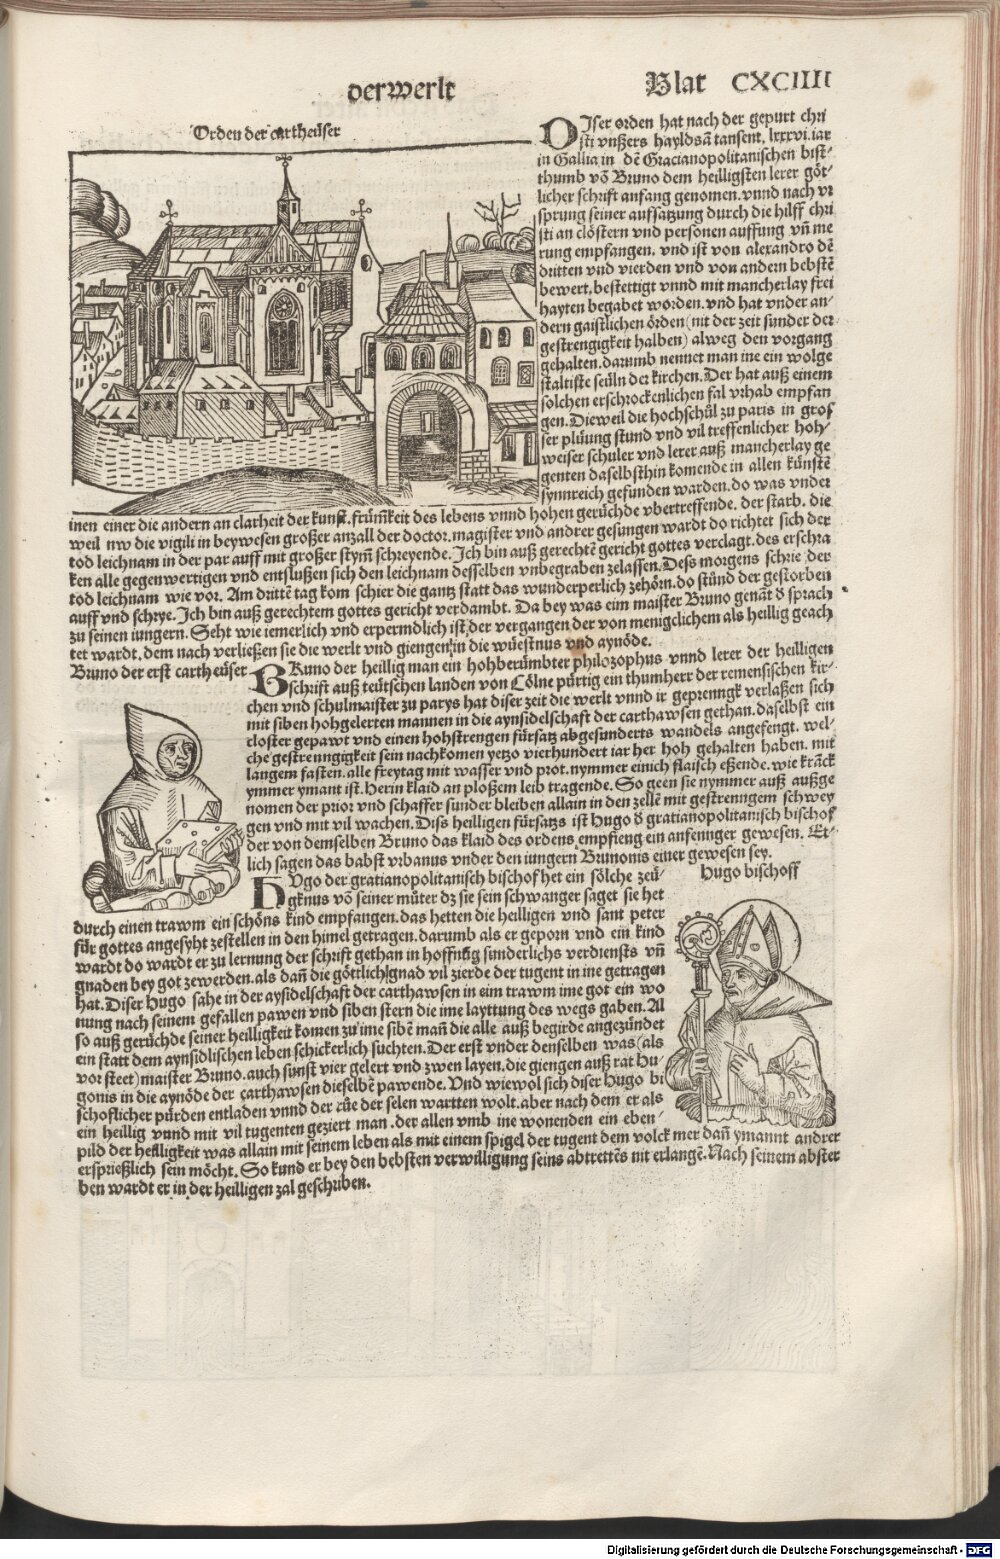 der werlt
Blat CXCIIII
Orden der cartheüser
DJser orden hat nach der gepurt chri
sti vnßers haylds ā tausent. lxxxvi. iar
in Gallia in dē Gracianopolitanischen bist-
thumb vō Bruno dem heilligsten lerer göt-
licher schrift anfang genomen. vnnd nach vr
sprung seiner auffsatzung durch die hilff chri
sti an clöstern vnd personen auffung vñ me
rung empfangen. vnd ist von alexandro dē
dritten vnd vierden vnd von andern bebstē
bewert, bestettigt vnnd mit mancherlay frei
hayten begabet worden. vnd hat vnder an-
dern gaistlichen örden (nit der zeit sunder der
gestrengigkeit halben) alweg den vorgang
gehalten. darumb nennet man ine ein wolge
staltiste seüln der kirchen. Der hat auß einem
solchen erschrockenlichen fal vrhab empfan
gen. Dieweil die hochschůl zu paris in gros
ser plüung stund vnd vil treffenlicher hoh-
weiser schuler vnd lerer auß mancherlay ge
genten daselbsthin komende in allen künstē
synnreich gefunden warden. do was vnder
inen einer die andern an clarheit der kunst. frümkeit des lebens vnnd hohen gerüchde vbertreffende. der starb. die
weil nw die vigili in beywesen großer anzall der doctor. magister vnd andrer gesungen wardt do richtet sich der
tod leichnam in der par auff mit großer stym̃ schreyende. Ich bin auß gerechtē gericht gottes verclagt. des erschra
ken alle gegenwertigen vnd entslußen sich den leichnam desselben vnbegraben zelassen. Deß morgens schrie der
tod leichnam wie vor. Am drittē tag kom schier die gantz statt das wunderperlich zehörn. do stůnd der gestorben
auff vnd schrye. Ich bin auß gerechtem gottes gericht verdambt. Da bey was eim maister Bruno genāt ð sprach
zu seinen iungern. Seht wie iemerlich vnd erpermdlich ist, der vergangen der von meniglichem als heillig geach
tet wardt. dem nach verließen sie die werlt vnd giengen in die wüestnus vnd aynöde.
Bruno der erst cartheüser
BRuno der heillig man ein hohberümbter philozophus vnnd lerer der heilligen
schrift auß teütschen landen von Cölne pürtig ein thumherr der remensischen kir-
chen vnd schulmaister zu parys hat diser zeit die werlt vnnd ir geprenngk verlaßen sich
mit siben hohgelerten mannen in die aynsidelschaft der carthawsen gethan. daselbst ein
closter gepawt vnd einen hohstrengen fürsatz abgesunderts wandels angefengt. wel-
che gestrenngigkeit sein nachkomen yetzo vierhundert iar her hoh gehalten haben. mit
langem fasten. alle freytag mit wasser vnd prot. nymmer einich flaisch eßende. wie kranck
ymmer ymant ist. Herin klaid an ploßem leib tragende. So geen sie nymmer auß außge
nomen der prior vnd schaffer sunder bleiben allain in den zelle mit gestrenngem schwey
gen vnd mit vil wachen. Diß heilligen fürsatzs ist Hugo ð gratianopolitanisch bischof
der von demselben Bruno das klaid des ordens empfieng ein anfennger gewesen. Et-
lich sagen das babst vrbanus vnder den iungern Brunonis einer gewesen sey.
Hugo bischoff
HVgo der gratianopolitanisch bischof het ein sölche zeü-
gknus vō seiner můter dz sie sein schwanger saget sie het
durch einen trawm ein schöns kind empfangen. das hetten die heilligen vnd sant peter
für gottes angesyht zestellen in den himel getragen. darumb als er geporn vnd ein kind
wardt do wardt er zu lernung der schrift gethan in hoffnūg sunderlichs verdiensts vñ
gnaden bey got zewerden. als dañ die göttlich gnad vil zierde der tugent in ine getragen
hat. Diser Hugo sahe in der aysidelschaft der carthawsen in eim trawm ime got ein wo
nung nach seinem gefallen pawen vnd siben stern die ime layttung des wegs gaben. Al
so auß gerüchde seiner heilligkeit komen zu ime sibē mañ die alle auß begirde angezündet
ein statt dem aynsidlischen leben schickerlich suchten. Der erst vnder denselben was (als
vor steet) maister Bruno. auch sunst vier gelert vnd zwen layen. die giengen auß rat Hu
gonis in die aynöde der carthawsen dieselbē pawende. Vnd wiewol sich diser Hugo bi
schoflicher pürden entladen vnnd der růe der selen wartten wolt. aber nach dem er als
ein heillig vnnd mit vil tugenten geziert man. der allen vmb ine wonenden ein eben-
pild der heilligkeit was allain mit seinem leben als mit einem spigel der tugent dem volck mer dañ ymannt andrer
ersprießlich sein möcht. So kund er bey den bebsten verwilligung seins abtrettēs nit erlangē. Nach seinem abster
ben wardt er in der heilligen zal geschriben.
Digitalisierung gefördert durch die Deutsche Forschungsgemeinschaft - DFG